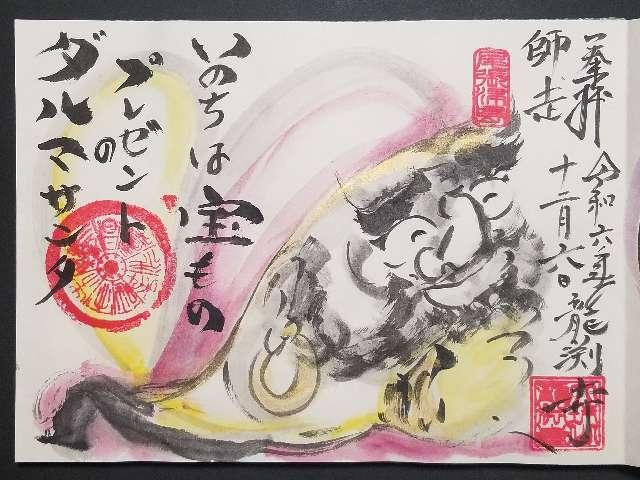 奉拝
令和六年
十二月六日
龍渕寺
師走
いのちは宝もの
プレゼント
の
ダルマサンタ